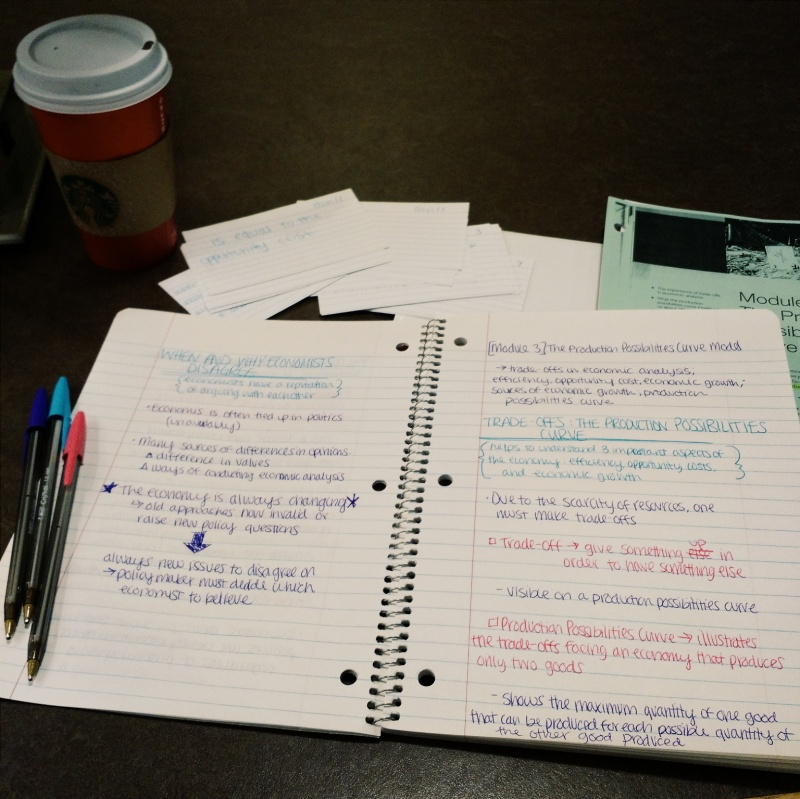 is equal to the
opportunity cost
Module
WHEN AND WHY ECONOMISTS
DISAGREE
{economists have a reputation
of arguing with each other}
· Economics is often tied up in politics
· Many sources of differences in opinions
△ difference in values
△ ways of conducting economic analysis
★ The economy is always changing ★
↳ old approaches now invalid or
raise new policy questions
always new issues to disagree on
→ policy maker must decide which
economist to believe
[Module 3] The Production Possibilities Curve Model
→ trade-offs in economic analysis,
efficiency, opportunity cost, economic growth,
sources of economic growth, production
possibilities curve
TRADE-OFFS: THE PRODUCTION POSSIBILITIES
CURVE
{helps to understand 3 important aspects of
the economy: efficiency, opportunity costs,
and economic growth}
· Due to the scarcity of resources, one
must make trade-offs
□ Trade-off → give something up in
order to have something else
- visible on a production possibilities curve
□ Production Possibilities Curve → illustrates
the trade-offs facing an economy that produces
only two goods
- shows the maximum quantity of one good
that can be produced for each possible quantity of
the other good produced